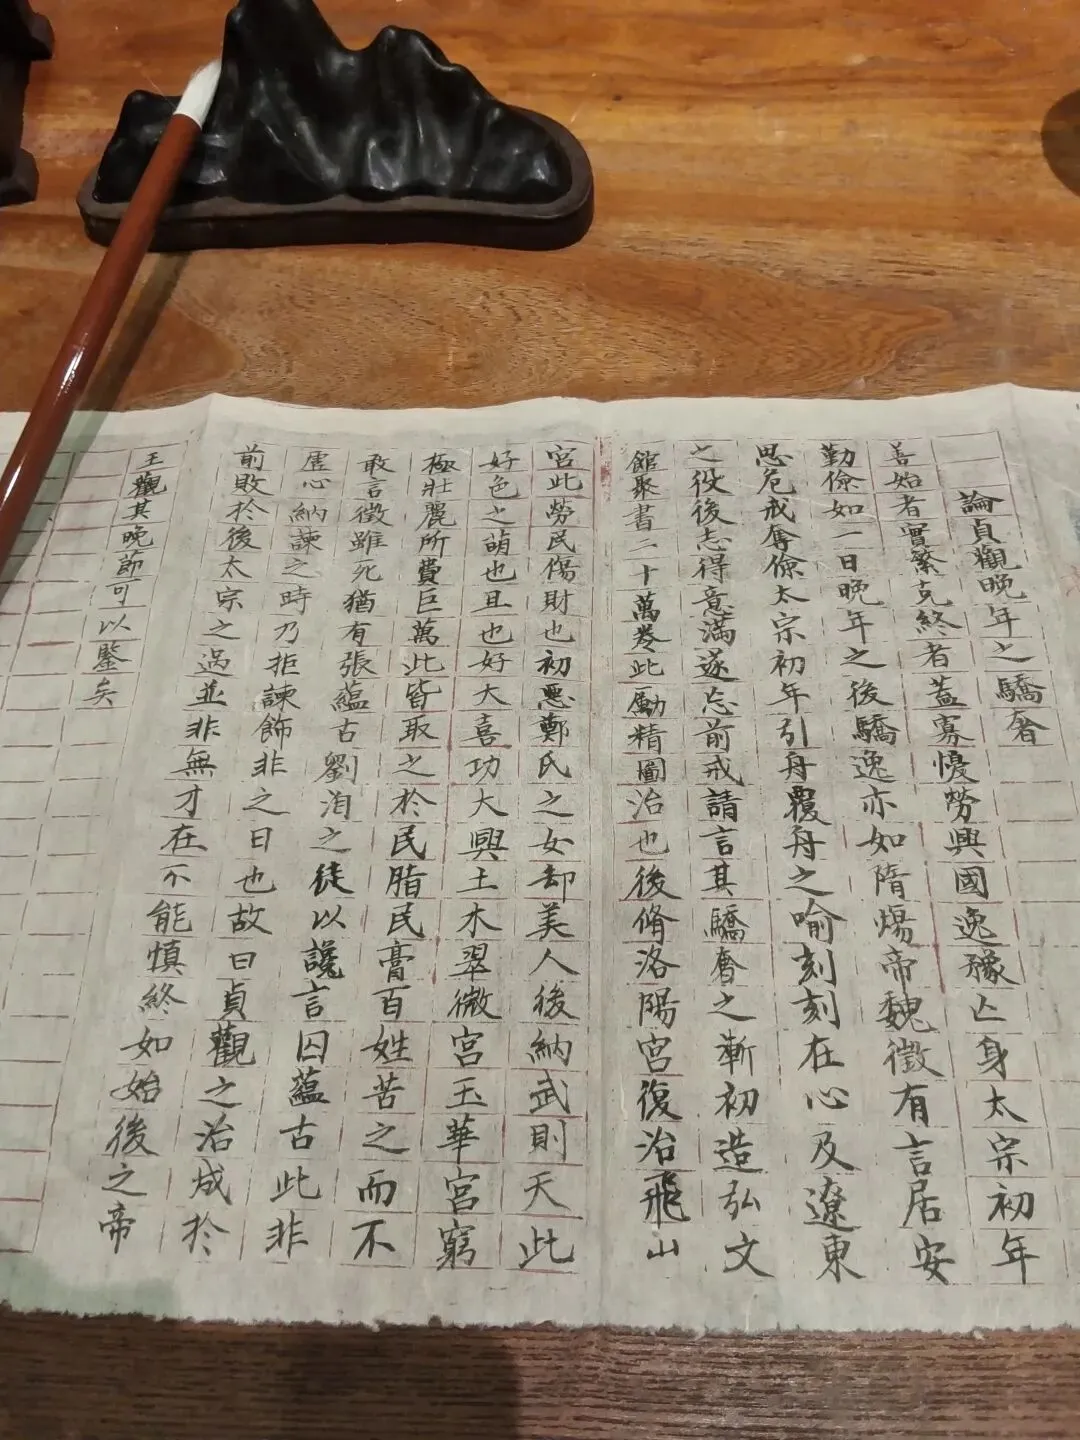 論貞觀晚年之驕奢
善始者實繁克終者蓋寡憂勞興國逸豫亡身太宗初年
勤儉如一日晚年之後驕逸亦如隋煬帝魏徵有言居安
思危戒奪儉太宗初年引舟覆舟之喻刻刻在心及遼東
之役後志得意滿遂忘前戒請言其驕奢之漸初造弘文
館聚書二十萬卷此勵精圖治也後脩洛陽宮復治飛山
宮此勞民傷財也初惡鄭氏之女却美人後納武則天此
好色之萌也且也好大喜功大興土木翠微宮玉華宮窮
極壯麗所費巨萬此皆取之於民脂民膏百姓苦之而不
敢言徵雖死猶有張蘊古劉洎之徒以讒言囚蘊古此非
虛心納諫之時乃拒諫飾非之日也故曰貞觀之治成於
前敗於後太宗之過並非無才在不能慎終如始後之帝
王觀其晚節可以鑒矣